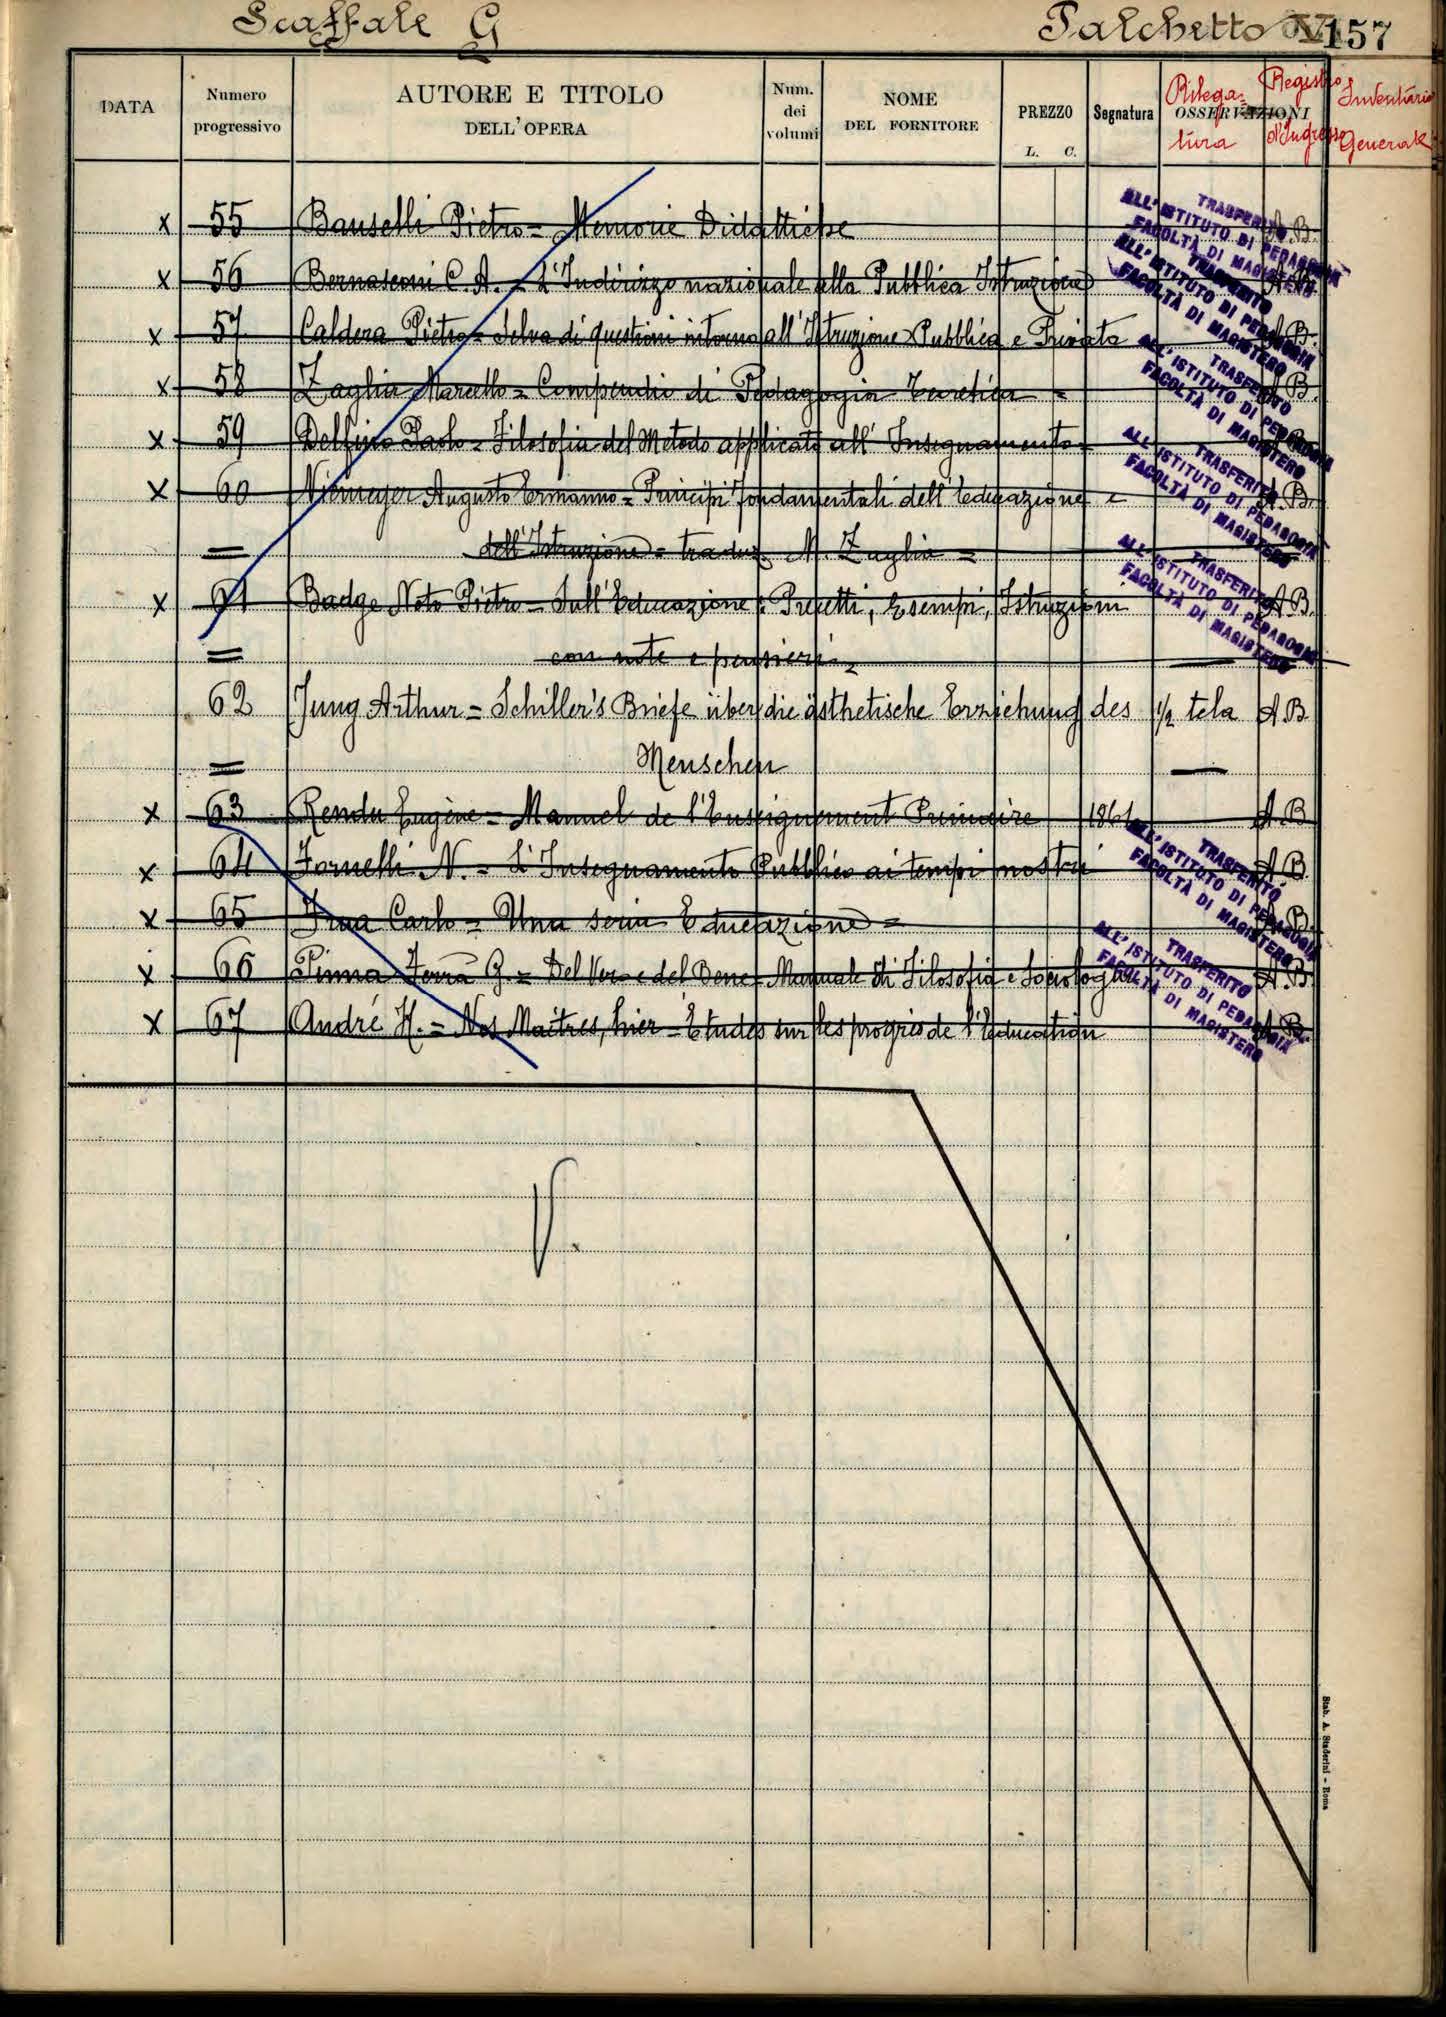 Scaffale G Palchetto V 157
DATA Numero progressivo AUTORE E TITOLO DELL'OPERA Num. dei volumi NOME DEL FORNITORE PREZZO L. C. Segnatura OSSERVAZIONI Rilegatura Registro d'Ingresso Inventario Generale
x 55 Pietro = Memorie Didattiche A.B.
x 56 Bernasconi C. A. = L'Indirizzo nazionale alla Pubblica Istruzione A.B.
x 57 Caldera Pietro = Selva di questioni intorno all'Istruzione Pubblica e Privata A.B.
x 58 Zaglia Marcello = Compendio di Pedagogia Teretica = A.B.
x 59 Delfino Paolo = Filosofia del Metodo applicato all' Insegnamento =
x 60 Niemeyer Augusto Ermanno = Principi fondamentali dell'educazione e A.B.
= dell'Istruzione = traduz. M. Zaglia =
x 61 Badge Noto Pietro = Sull'Educazione: Precetti, Esempi, Istruzioni A.B.
= con note e pensieri =
62 Jung Arthur = Schiller's Briefe über die ästhetische Erziehung des ½ tela A.B.
= Menschen —
x 63 Rendu Eugène = Manuel de l'Enseignement Primaire 1861 A.B
x 64 Fornelli N. = L'Insegnamento Pubblico ai tempi nostri A.B
x 65 Carlo = Una seria Educazione = A.B.
x 66 Pinna Ferrà G. = Del Vero e del Bene = Manuale di Filosofia e Sociologia A.B.
x 67 André H. = Nos Maîtres, hier = Etudes sur les progrès de l'Education A.B.
TRASFERITO
ALL'ISTITUTO DI PEDAGOGIA
FACOLTÀ DI MAGISTERO
TRASFERITO
ALL'ISTITUTO DI PEDAGOGIA
FACOLTÀ DI MAGISTERO
TRASFERITO
ALL'ISTITUTO DI PEDAGOGIA
FACOLTÀ DI MAGISTERO
TRASFERITO
ALL'ISTITUTO DI PEDAGOGIA
FACOLTÀ DI MAGISTERO
TRASFERITO
ALL'ISTITUTO DI PEDAGOGIA
FACOLTÀ DI MAGISTERO
TRASFERITO
ALL'ISTITUTO DI PEDAGOGIA
FACOLTÀ DI MAGISTERO
TRASFERITO
ALL'ISTITUTO DI PEDAGOGIA
FACOLTÀ DI MAGISTERO
V.
Stab. A. Staderini - Roma